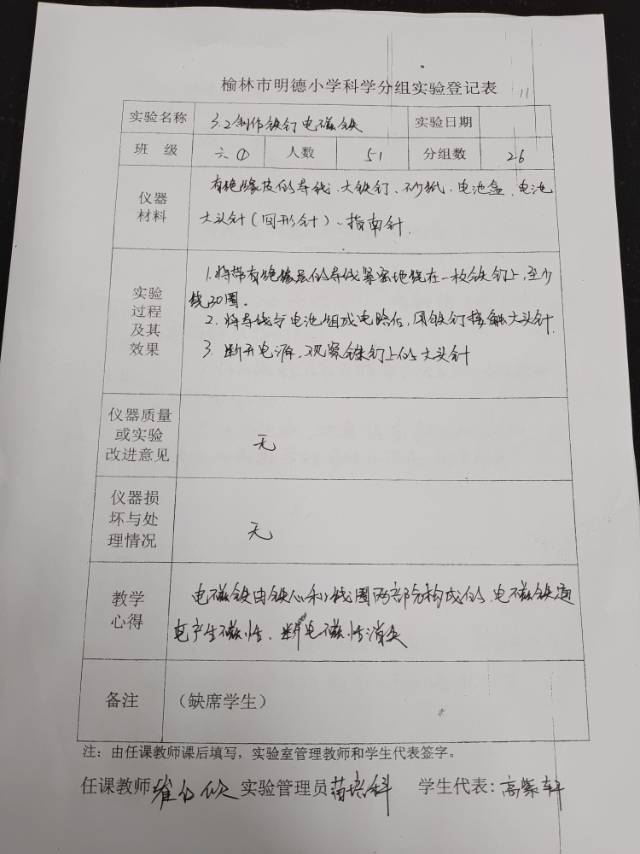 榆林市明德小学科学分组实验登记表
11
实验名称 3.2制作铁钉电磁铁 实验日期
班 级 六① 人数 51 分组数 26
仪器材料 有绝缘皮的导线、大铁钉、砂纸、电池盒、电池
大头针(回形针)、指南针.
实验过程及其效果 1.将带有绝缘层的导线紧密地绕在一枚铁钉上,至少
绕30圈.
2. 将导线与电池组成电路后,用铁钉接触大头针.
3. 断开电源、观察铁钉上的大头针
仪器质量或实验改进意见 无
仪器损坏与处理情况 无
教学心得 电磁铁由铁心和线圈两部分构成的,电磁铁通
电产生磁性,断电磁性消失
备注 (缺席学生)
注:由任课教师课后填写,实验室管理教师和学生代表签字。
任课教师 实验管理员 学生代表:高紫轩